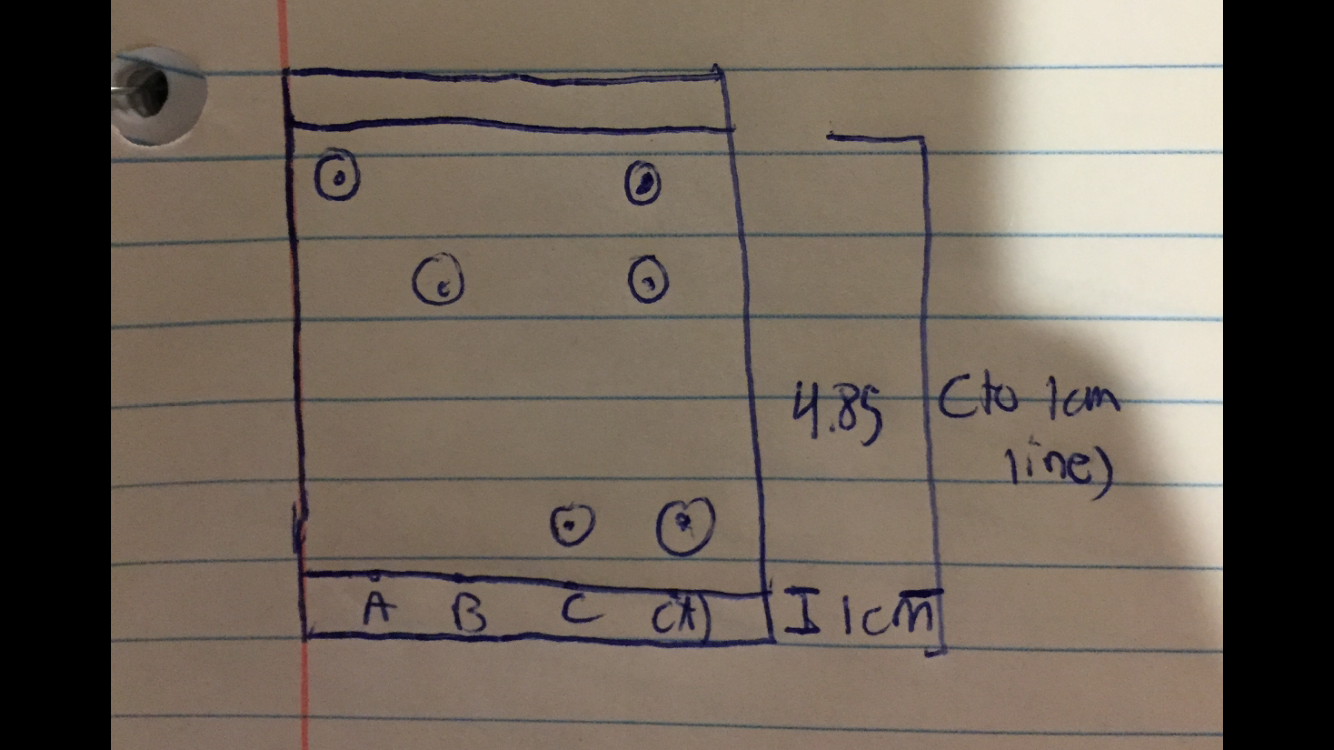 4.85 (to 1cm
line)
A B C (X) I 1cm